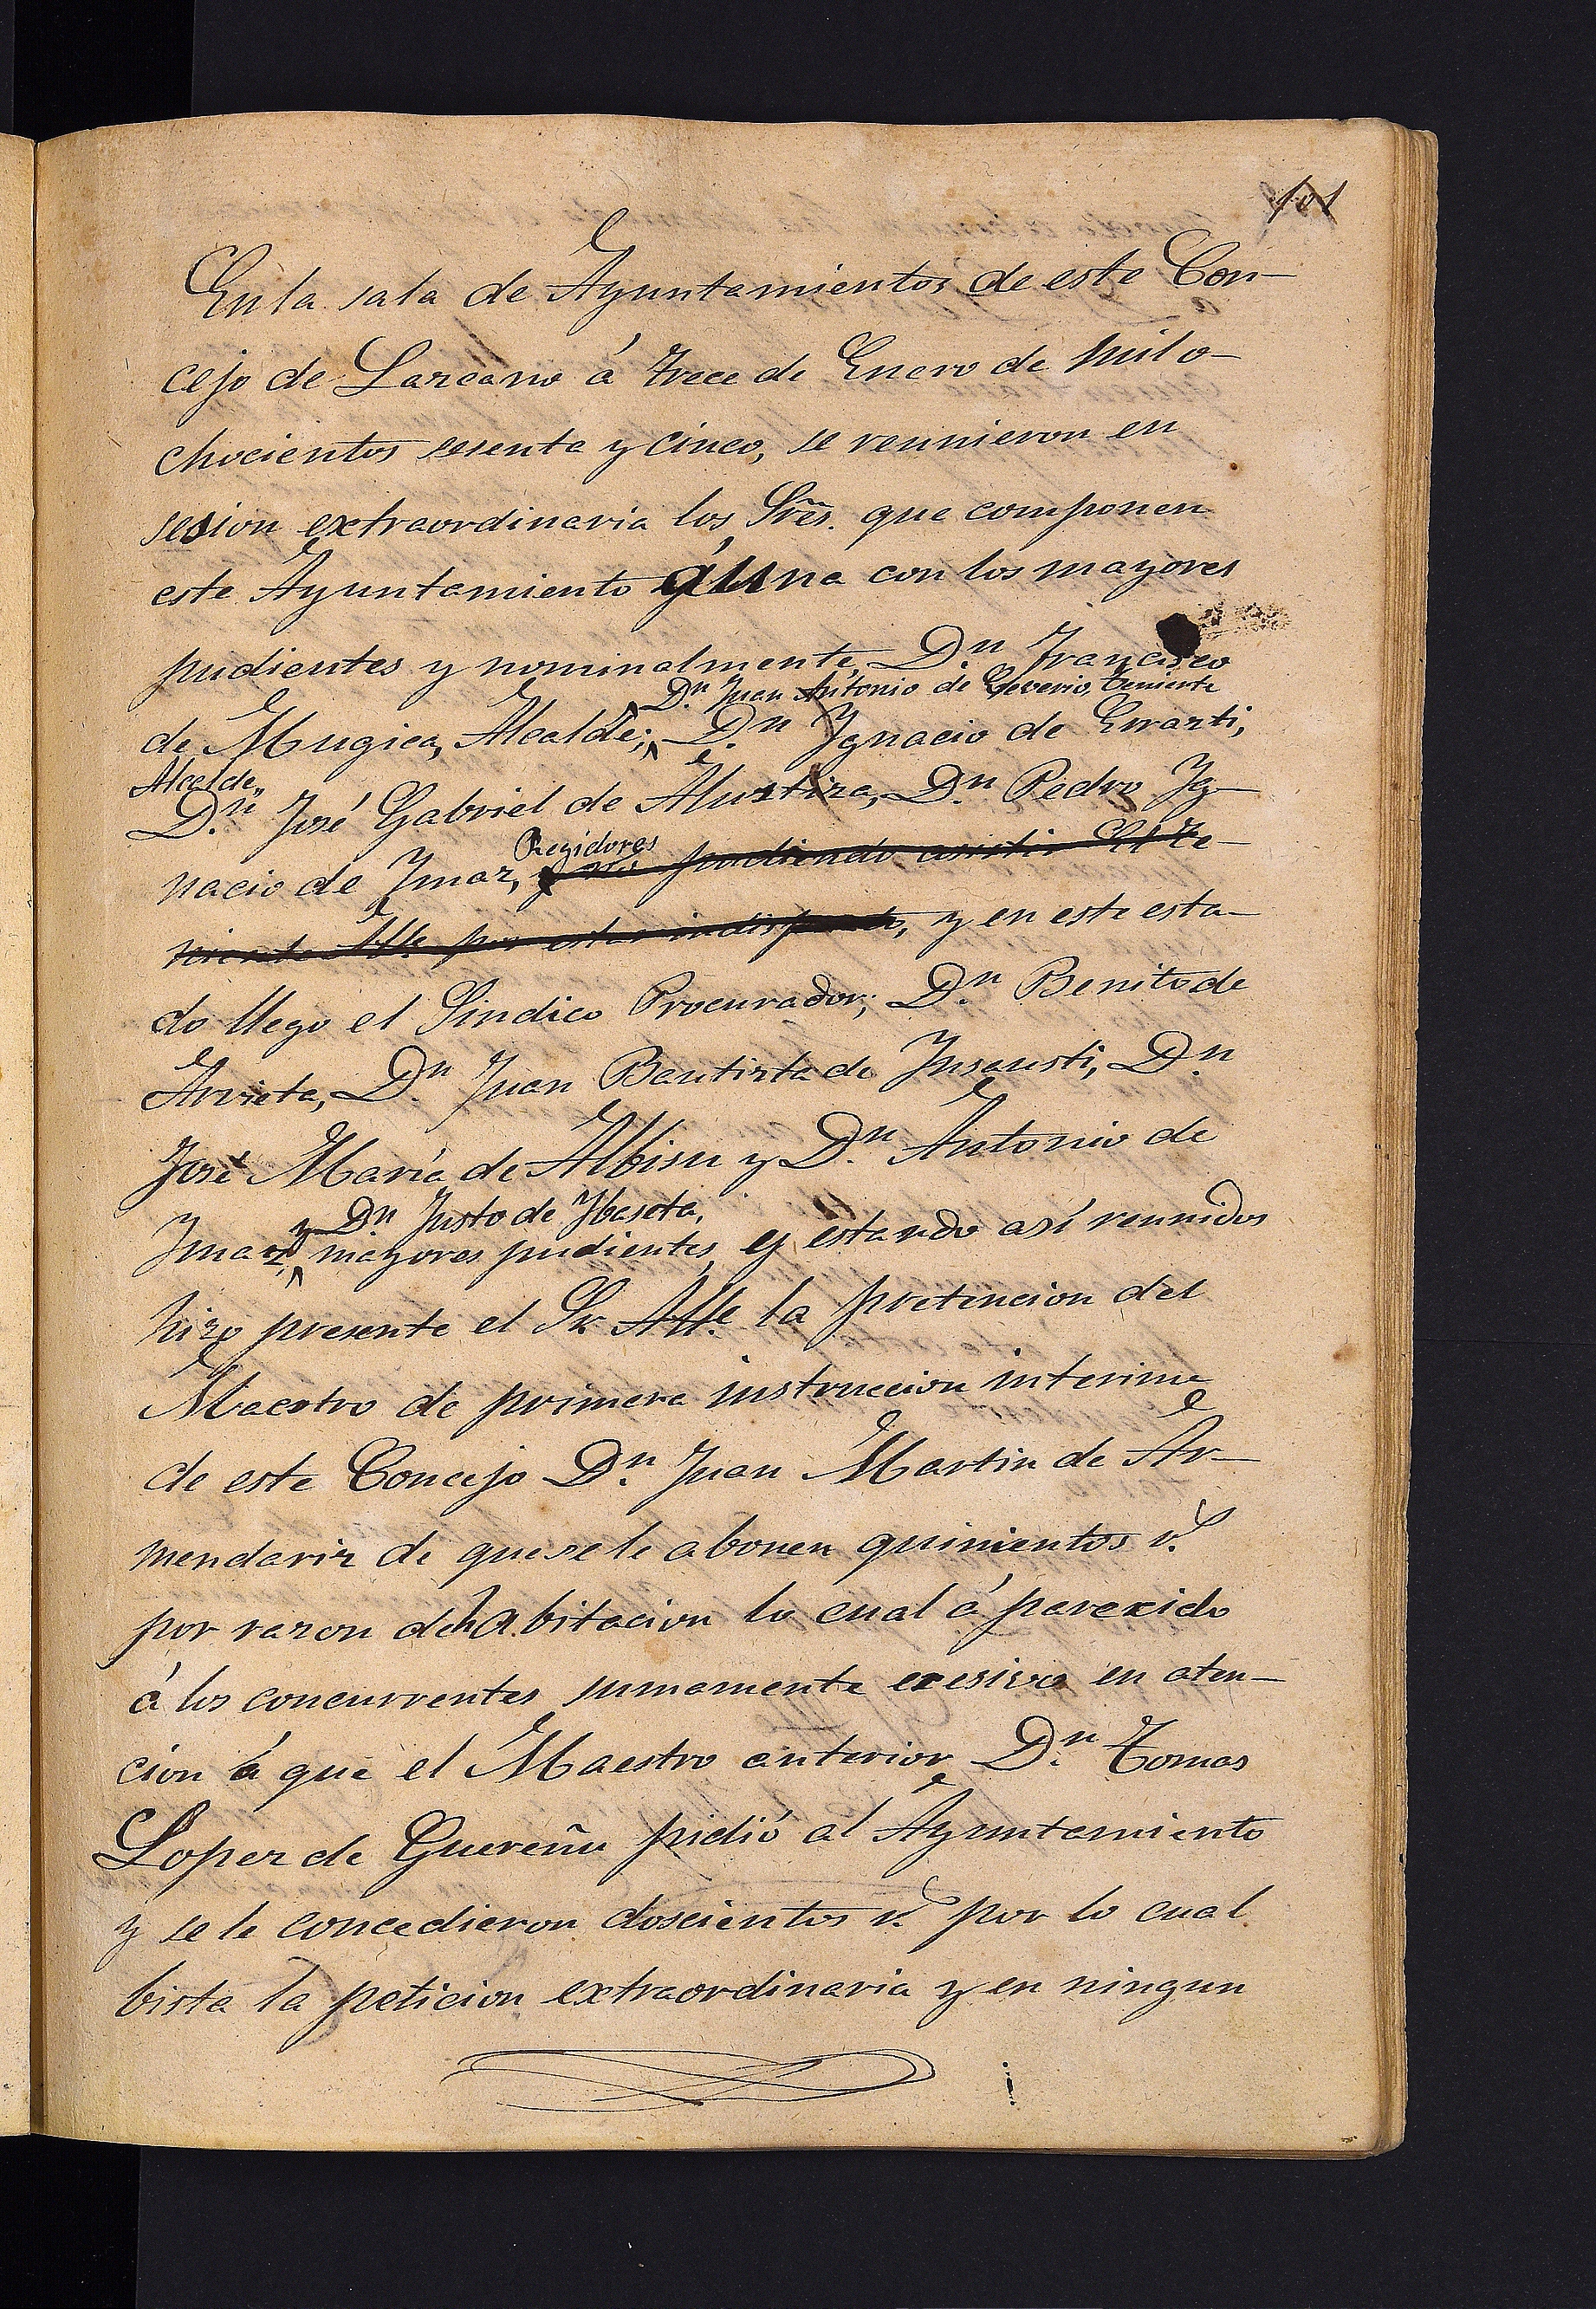 101
En la sala de Ayuntamientos de este Con-
cejo de Lazcano á trece de Enero de mil o-
chocientos sesenta y cinco, se reunieron en
sesion extraordinaria los Sres. que componen
este Ayuntamiento á una con los mayores
pudientes y nominalmente, Dn. Francisco
Dn. Juan Antonio de teniente
de Mugica, Alcalde; Dn. Ygnacio de Errazti,
Alcalde,,
Dn. José Gabriel de Alustiza, Dn. Pedro Yg-
Regidores
nacio de Ymaz, y no pudiendo asistir El Te-
niente Alle por estar indispuesto, y en este esta-
do llego el Sindico Procurador; Dn. Benito de
Arrieta, Dn. Juan Bautista de Ynsausti, Dn.
José María de Albisu y Dn. Antonio de
y Dn. Justo de Ybaseta,
Ymaz, mayores pudientes, y estando así reunidos
hizo presente el Sr. Alle. la pretencion del
Maestro de primera instruccion interino
de este Concejo Dn. Juan Martin de Ar-
mendariz de que se le abonen quinientos r.s
por razon de habitacion lo cual á parecido
á los concurrentes sumamente exesiva en aten-
cion á que el Maestro anterior Dn. Tomas
Lopez de Guereñu pidió al Ayuntamiento
y se le concedieron doscientos r.s por lo cual
bista la peticion extraordinaria y en ningun